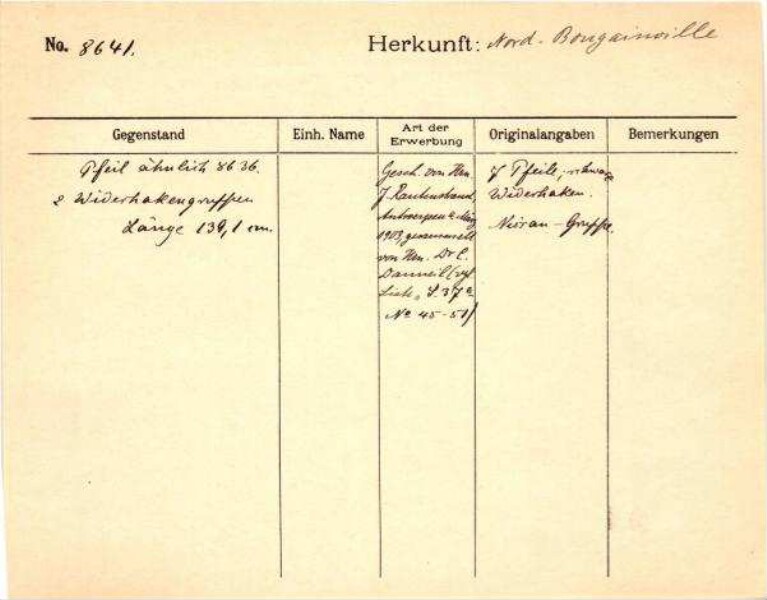 No. 8641.
Herkunft: Nord-Bougainville
Gegenstand
Einh. Name
Art der Erwerbung
Originalangaben
Bemerkungen
Pfeil ähnlich 8636.
2 Widerhakengruppen
Länge 139,1 cm.
Gesch. von Hrn.
J. Rautenstrauch,
Antwerpen
1903, gesammelt
von Hrn. Dr C.
Danneil (vgl
Liste, S. 37a
No 45-51)
7 Pfeile, schwarze
Widerhaken.
Gruppe.